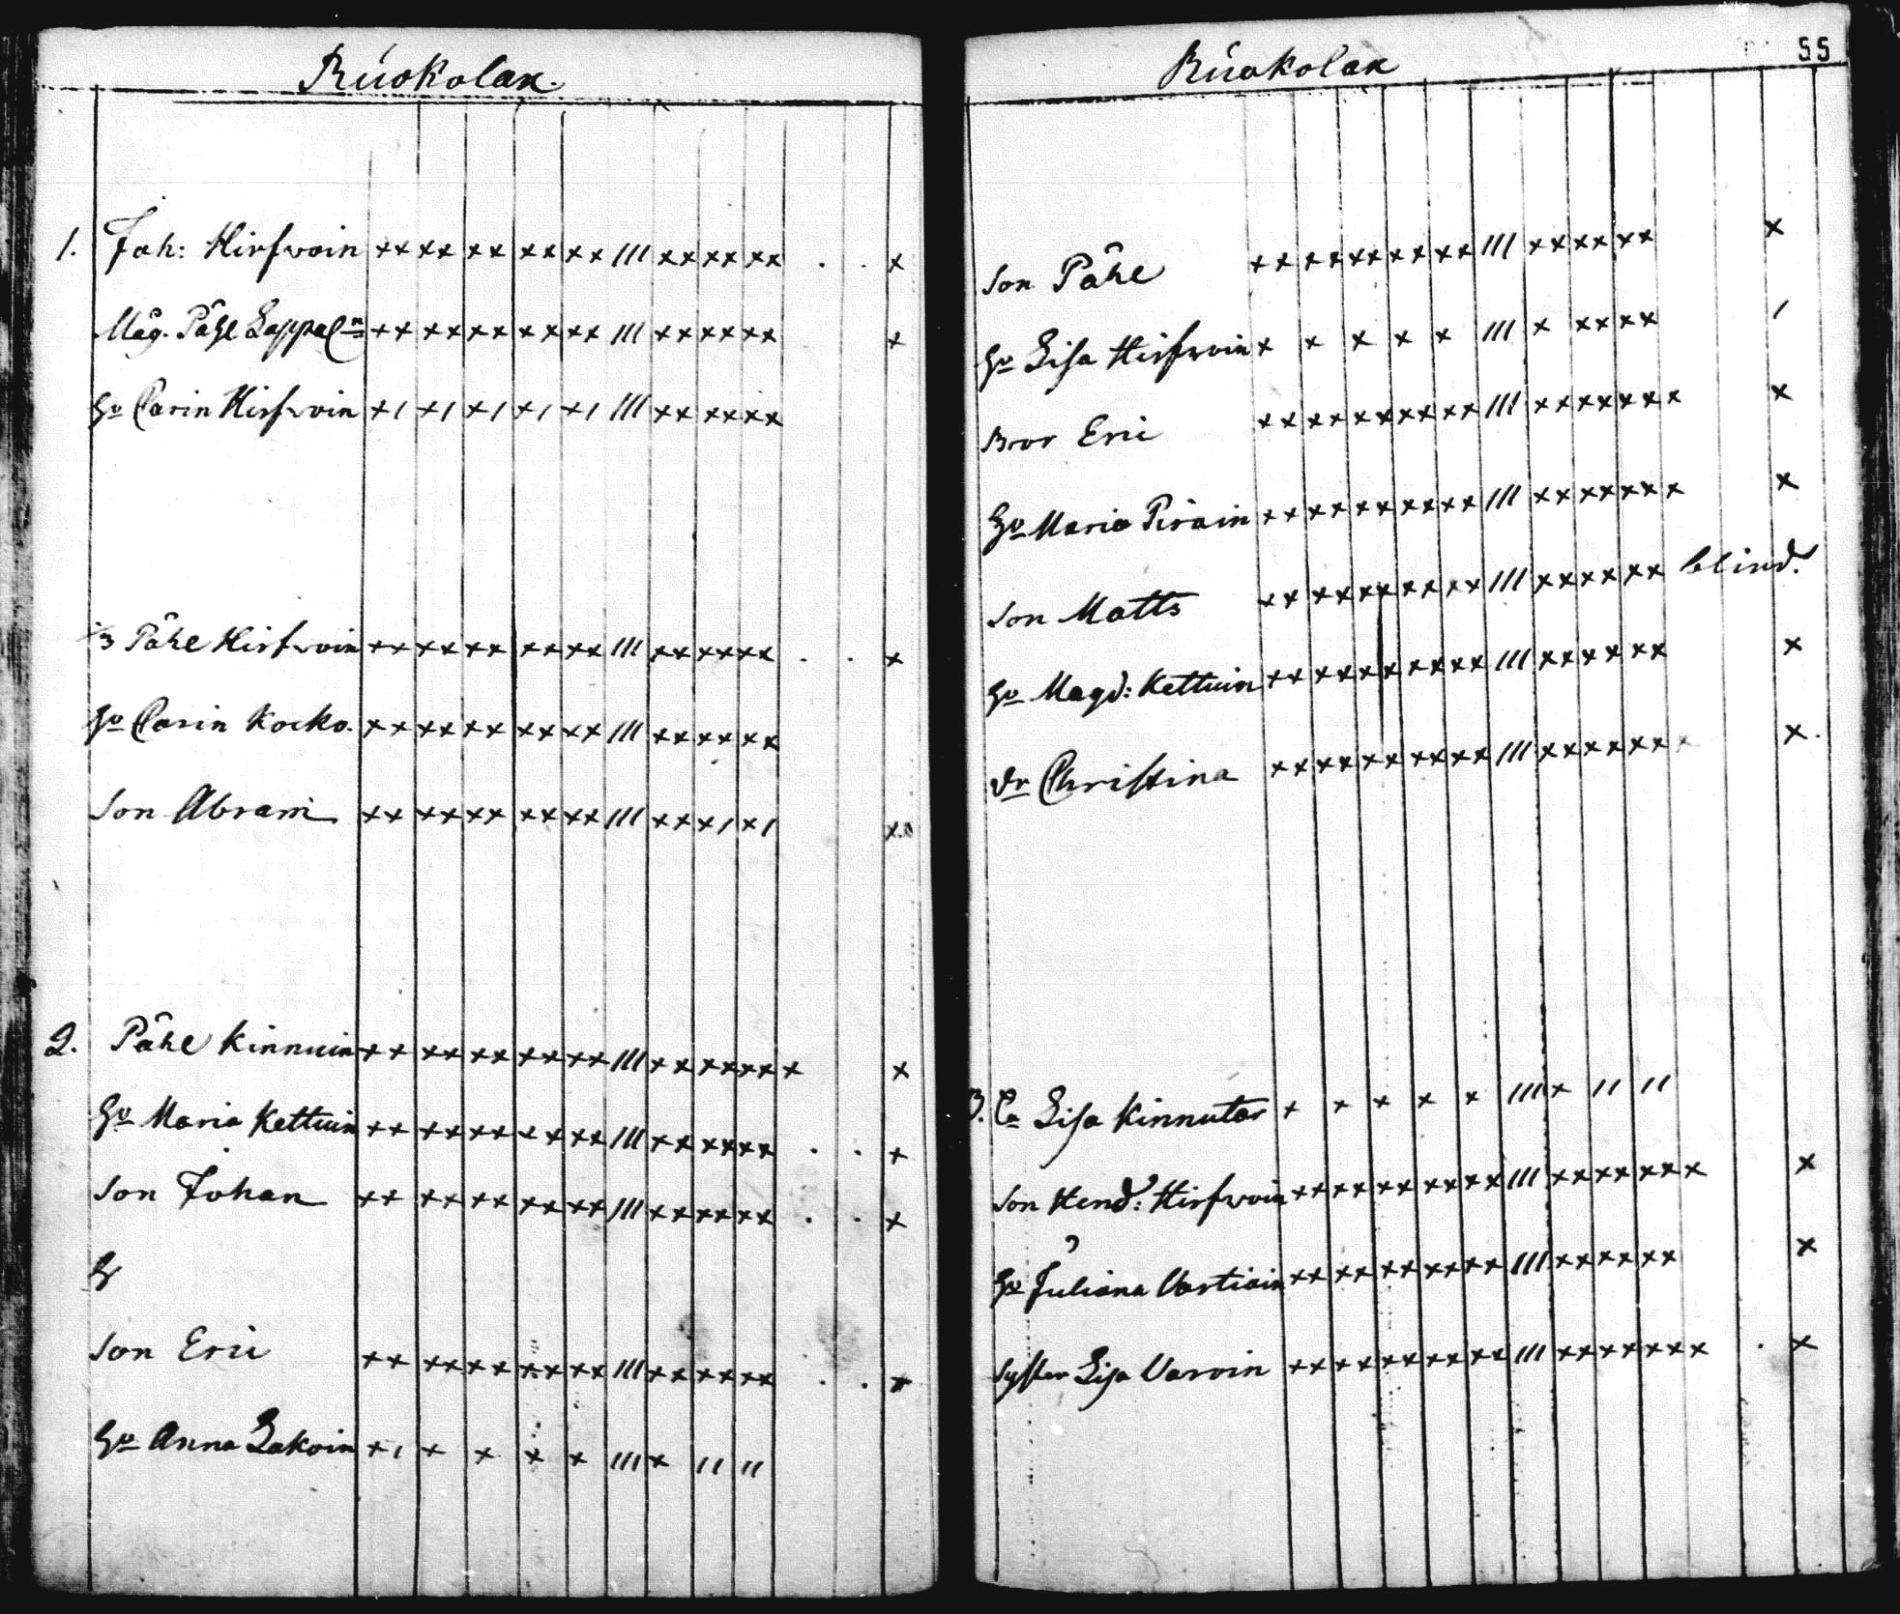 Ruokolax.
1. Joh: Hirfvoin ×× ×× ×× ×× ×× /// ×× ×× ×× . . ×
Måg. Påhl ×× ×× ×× ×× ×× /// ×× ×× ×× ×
Hu Carin Hirfvoin ×/ ×/ ×/ ×/ ×/ /// ×× ×× ××
/3 Påhl Hirfvoin ×× ×× ×× ×× ×× /// ×× ×× ×× . . ×
Hu Carin Kocko. ×× ×× ×× ×× ×× /// ×× ×× ××
Son Abram ×× ×× ×× ×× ×× /// ×× ×/ ×/
2. Påhl Kinnuin ×× ×× ×× ×× ×× /// ×× ×× ×× × ×
Hu Maria Kettuin ×× ×× ×× ×× ×× /// ×× ×× ×× . . ×
Son Johan ×× ×× ×× ×× ×× /// ×× ×× ×× . . ×
H
Son Eric ×× ×× ×× ×× ×× /// ×× ×× ×× . . ×
Hu Anna Lakoin ×/ × × × × /// × // //
Ruokolax
55
Son Påhl ×× ×× ×× ×× ×× /// ×× ×× ×× ×
Hu Lisa Hirfvoin × × × × × /// × ×× ×× /
Bror Eric ×× ×× ×× ×× ×× /// ×× ×× ×× × ×
Hu Maria Piroin ×× ×× ×× ×× ×× /// ×× ×× ×× × ×
Son Matts ×× ×× ×× ×× ×× /// ×× ×× ×× blind.
Hu Magd: Kettuin ×× ×× ×× ×× ×× /// ×× ×× ×× ×
dr Christina ×× ×× ×× ×× ×× /// ×× ×× ×× × ×.
3. Lisa Kinnutar × × × × × /// × // //
Son Hend: Hirfvoin ×× ×× ×× ×× ×× /// ×× ×× ×× × ×
Hu Juliana Vartioin ×× ×× ×× ×× ×× /// ×× ×× ×× ×
Syster Lisa Varoin ×× ×× ×× ×× ×× /// ×× ×× ×× × . ×